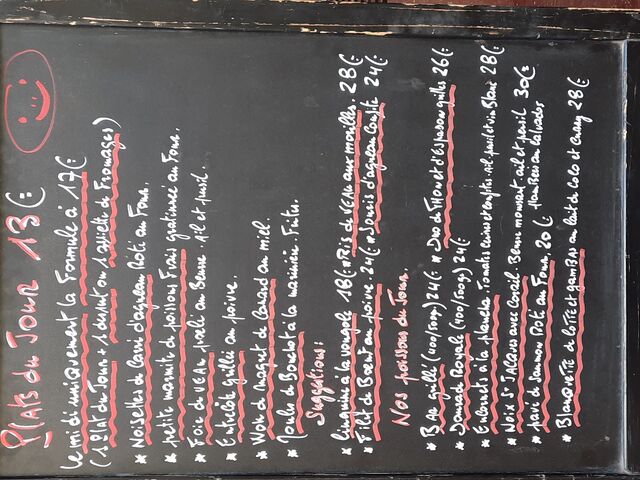 Plats du Jour 13€
le midi uniquement la Formule à 17€
(1 Plat du Jour + 1 dessert ou 1 assiette de Fromages)
* Noisettes de Carré d'agneau Rôti au Four.
* petite marmite de poissons Frais gratinée au Four.
* Foie de VEAU poêlé au Beurre Ail et persil
* Entrecôte grillée au poivre.
* Wok de Magret de Canard au miel.
* Moules de Bouchot à la marinière Frites.
Suggestions:
* linguine à la vongole 18€ * Ris de VEAU aux morilles. 28€
* Filet de Boeuf au poivre 24€ * Souris d'agneau Confite 24€
Nos poissons du Jour.
* BAR grillé (400/500g) 24€ * Duo de THon et d'Espadon grillés 26€
* Daurade Royale (400/500g) 24€
* Encornets à la plancha Tomates cerises et câpres Ail persil et vin Blanc 28€
* Noix St JACques avec Corail Beurre moussant ail et persil 30€
* pavé de saumon Rôti au Four, 20€ flambées au Calvados
* BlanQUETTE de lotte et gambas au lait de Coco et Curry 28€